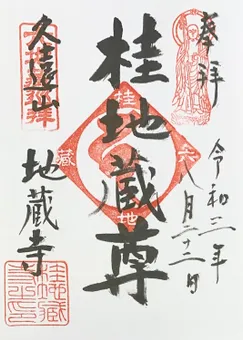 奉拝
令和三年
八月二十二日
桂地蔵尊
久遠山
地蔵寺
桂
六
地
蔵